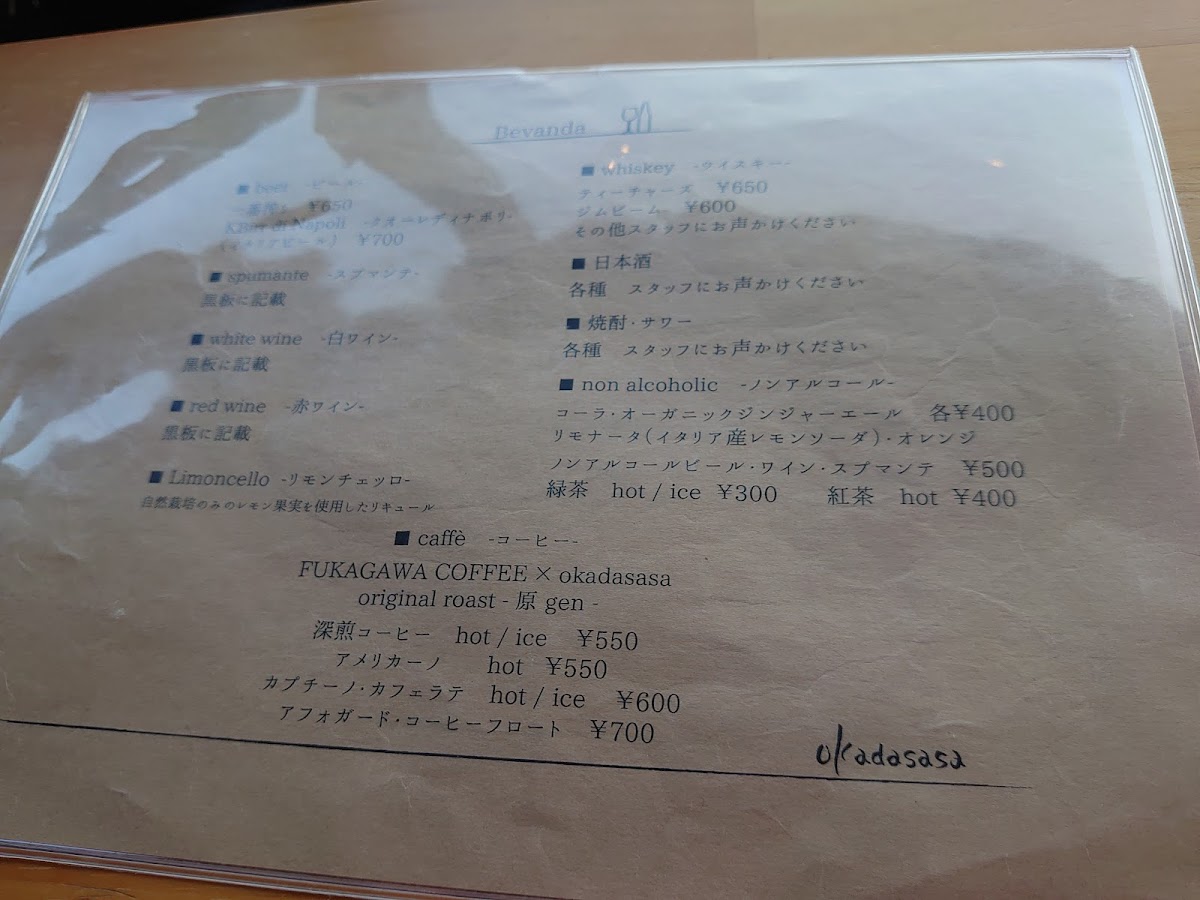 Bevanda
■ beer -ビール-
一番搾り ¥650
KBirr di Napoli -クオーレディナポリ-
(イタリアビール) ¥700
■ spumante -スプマンテ-
黒板に記載
■ white wine -白ワイン-
黒板に記載
■ red wine -赤ワイン-
黒板に記載
■ Limoncello -リモンチェッロ-
自然栽培のみのレモン果実を使用したリキュール
■ whiskey -ウイスキー-
ティーチャーズ ¥650
ジムビーム ¥600
その他スタッフにお声かけください
■ 日本酒
各種 スタッフにお声かけください
■ 焼酎・サワー
各種 スタッフにお声かけください
■ non alcoholic -ノンアルコール-
コーラ・オーガニックジンジャーエール 各¥400
リモナータ(イタリア産レモンソーダ)・オレンジ
ノンアルコールビール・ワイン・スプマンテ ¥500
緑茶 hot / ice ¥300 紅茶 hot ¥400
■ caffè -コーヒー-
FUKAGAWA COFFEE × okadasasa
original roast - 原 gen -
深煎コーヒー hot / ice ¥550
アメリカーノ hot ¥550
カプチーノ・カフェラテ hot / ice ¥600
アフォガード・コーヒーフロート ¥700
okadasasa